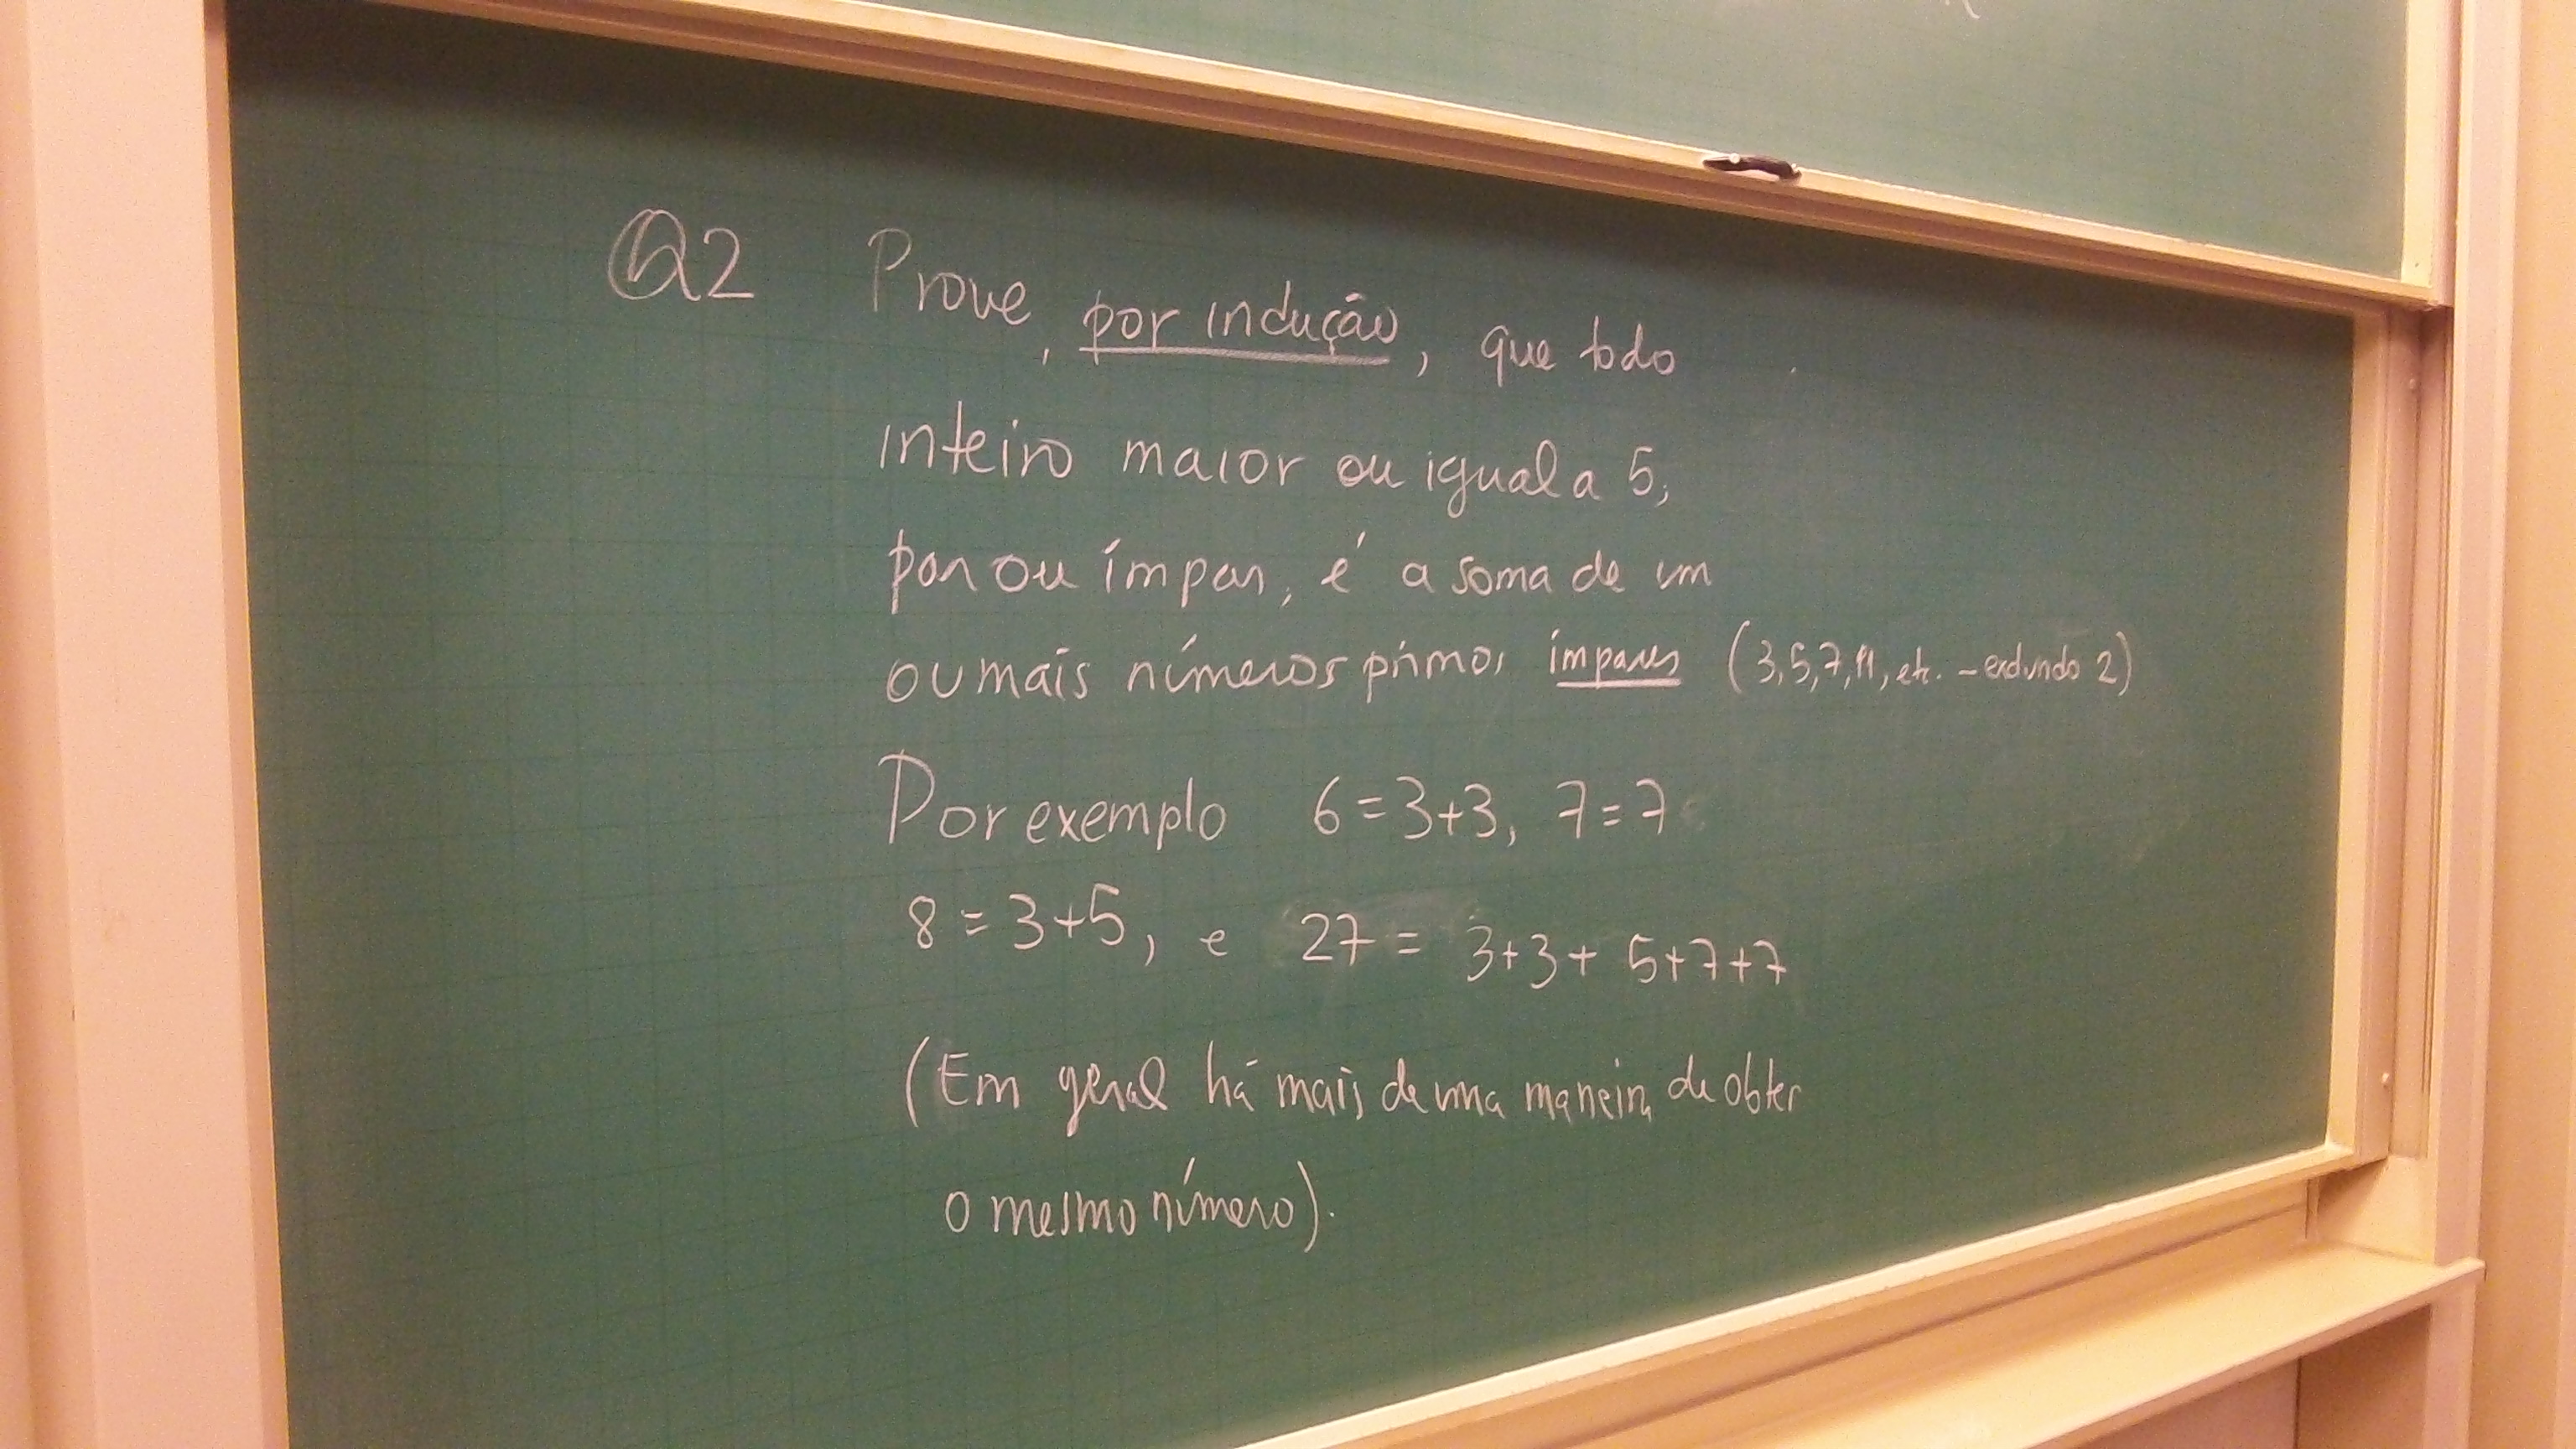 Q2 Prove, por indução, que todo
inteiro maior ou igual a 5,
par ou ímpar, é a soma de um
ou mais números primos ímpares (3,5,7,11, etc. - excluindo 2)
Por exemplo 6=3+3, 7=7
8=3+5, e 27= 3+3+5+7+7
(Em geral há mais de uma maneira de obter
o mesmo número).